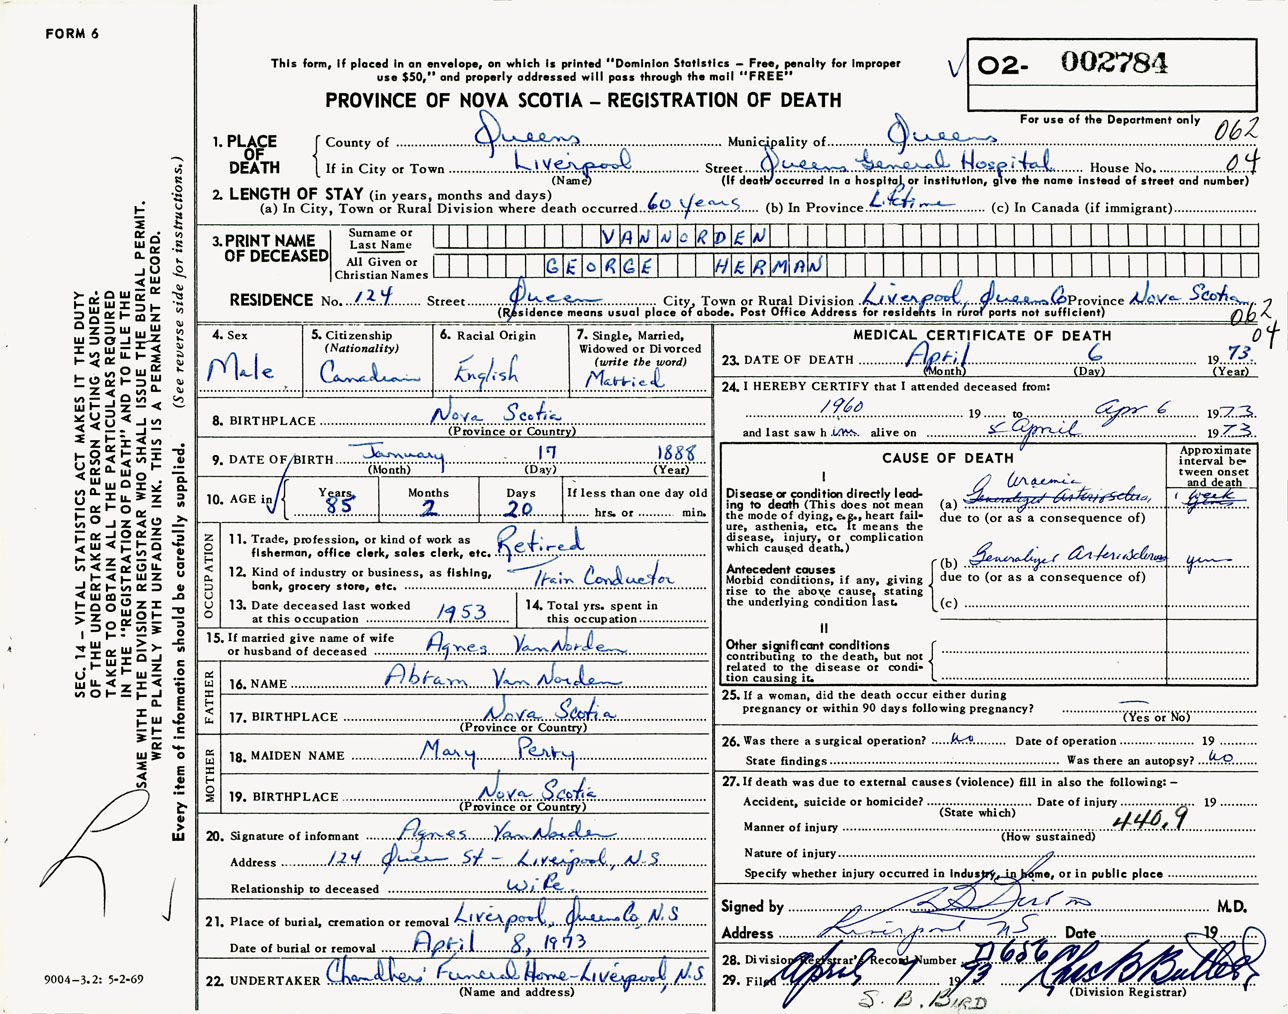 FORM 6
This form, if placed in an envelope, on which is printed "Dominion Statistics – Free, penalty for improper
use $50," and properly addressed will pass through the mail "FREE"
PROVINCE OF NOVA SCOTIA – REGISTRATION OF DEATH
02- 002784
For use of the Department only
062
04
1. PLACE OF DEATH
County of Queens Municipality of Queens
If in City or Town Liverpool Street Queens General Hospital House No.
(Name) (If death occurred in a hospital or institution, give the name instead of street and number)
2. LENGTH OF STAY (in years, months and days)
(a) In City, Town or Rural Division where death occurred 60 years (b) In Province Lifetime (c) In Canada (if immigrant)
3. PRINT NAME OF DECEASED
Surname or Last Name VANNORDEN
All Given or Christian Names GEORGE HERMAN
RESIDENCE No. 124 Street Queen City, Town or Rural Division Liverpool, Queens Co Province Nova Scotia
(Residence means usual place of abode. Post Office Address for residents in rural parts not sufficient)
062
04
4. Sex
Male
5. Citizenship
(Nationality)
Canadian
6. Racial Origin
English
7. Single, Married,
Widowed or Divorced
(write the word)
Married
8. BIRTHPLACE Nova Scotia
(Province or Country)
9. DATE OF BIRTH January 17 1888
(Month) (Day) (Year)
10. AGE in
Years 85
Months 2
Days 20
If less than one day old
hrs. or min.
OCCUPATION
11. Trade, profession, or kind of work as
fisherman, office clerk, sales clerk, etc. Retired
12. Kind of industry or business, as fishing,
bank, grocery store, etc. Train Conductor
13. Date deceased last worked
at this occupation 1953
14. Total yrs. spent in
this occupation
15. If married give name of wife
or husband of deceased Agnes VanNorden
FATHER
16. NAME Abram Van Norden
17. BIRTHPLACE Nova Scotia
(Province or Country)
MOTHER
18. MAIDEN NAME Mary Perry
19. BIRTHPLACE Nova Scotia
(Province or Country)
20. Signature of informant Agnes VanNorden
Address 124 Queen St – Liverpool, N.S
Relationship to deceased Wife.
21. Place of burial, cremation or removal Liverpool, Queens Co, N.S
Date of burial or removal April 8, 1973
22. UNDERTAKER Chandlers' Funeral Home – Liverpool, N.S
(Name and address)
MEDICAL CERTIFICATE OF DEATH
23. DATE OF DEATH April 6 1973
(Month) (Day) (Year)
24. I HEREBY CERTIFY that I attended deceased from:
1960 19 to Apr 6 1973
and last saw h im alive on 5 April 1973
CAUSE OF DEATH
Approximate interval between onset and death
I
Disease or condition directly leading to death (This does not
mean the mode of dying, e.g., heart failure, asthenia, etc. It means the
disease, injury, or complication
which caused death.)
Uraemia
(a) Generalized Arteriosclerosis 1 week
due to (or as a consequence of)
Antecedent causes
Morbid conditions, if any, giving
rise to the above cause, stating
the underlying condition last.
(b) Generalized Arteriosclerosis years
due to (or as a consequence of)
(c)
II
Other significant conditions
contributing to the death, but not
related to the disease or condition causing it.
25. If a woman, did the death occur either during
pregnancy or within 90 days following pregnancy? —
(Yes or No)
26. Was there a surgical operation? No Date of operation 19
State findings Was there an autopsy? No
27. If death was due to external causes (violence) fill in also the following: –
Accident, suicide or homicide? Date of injury 19
(State which)
Manner of injury 440.9
(How sustained)
Nature of injury
Specify whether injury occurred in industry, in home, or in public place
Signed by M.D.
Address Liverpool NS Date 19
28. Division Registrar's Record Number 656
29. Filed April 7 1973 Chas B Butler
(Division Registrar)
S. B. BIRD
SEC. 14 – VITAL STATISTICS ACT MAKES IT THE DUTY
OF THE UNDERTAKER OR PERSON ACTING AS UNDER-
TAKER TO OBTAIN ALL THE PARTICULARS REQUIRED
IN THE "REGISTRATION OF DEATH" AND TO FILE THE
SAME WITH THE DIVISION REGISTRAR WHO SHALL ISSUE THE BURIAL PERMIT.
WRITE PLAINLY WITH UNFADING INK. THIS IS A PERMANENT RECORD.
Every item of information should be carefully supplied. (See reverse side for instructions.)
9004-3.2: 5-2-69